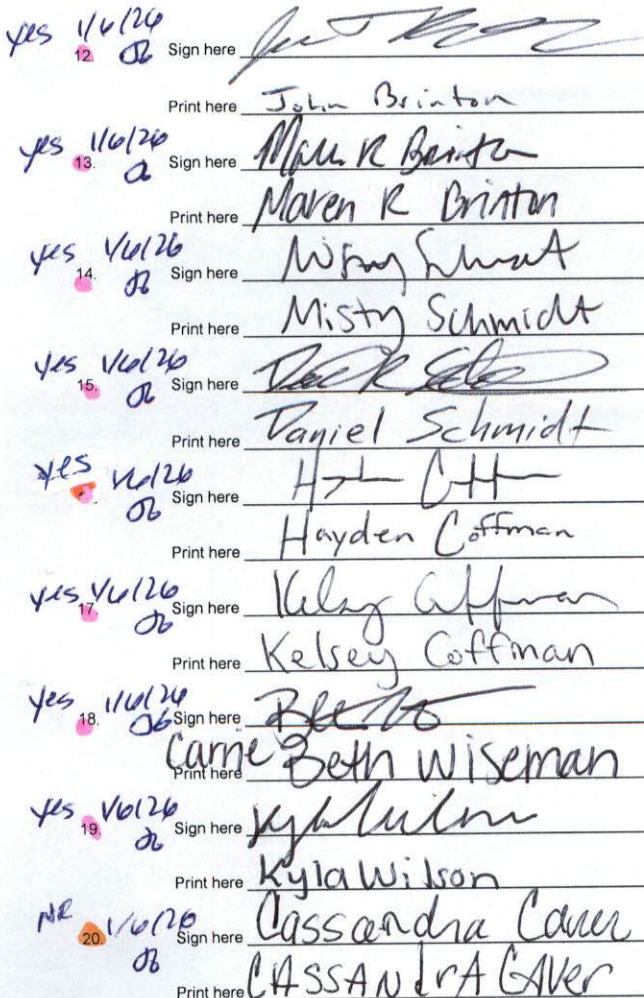 yes 1/6/26
12. Sign here
Print here John Brinton
yes 1/6/26
13. Sign here Maren R Brinton
Print here Maren R Brinton
yes 1/6/26
14. Sign here Misty Schmidt
Print here Misty Schmidt
yes 1/6/26
15. Sign here
Print here Daniel Schmidt
yes 1/6/26
Sign here
Print here Hayden Coffman
yes 1/6/26
17. Sign here Kelsey Coffman
Print here Kelsey Coffman
yes 1/6/26
18. Sign here
Print here Carrie Beth Wiseman
yes 1/6/26
19. Sign here Kyla Wilson
Print here Kyla Wilson
NR 1/6/26
20. Sign here Cassandra Caver
Print here CASSANdrA CAVer